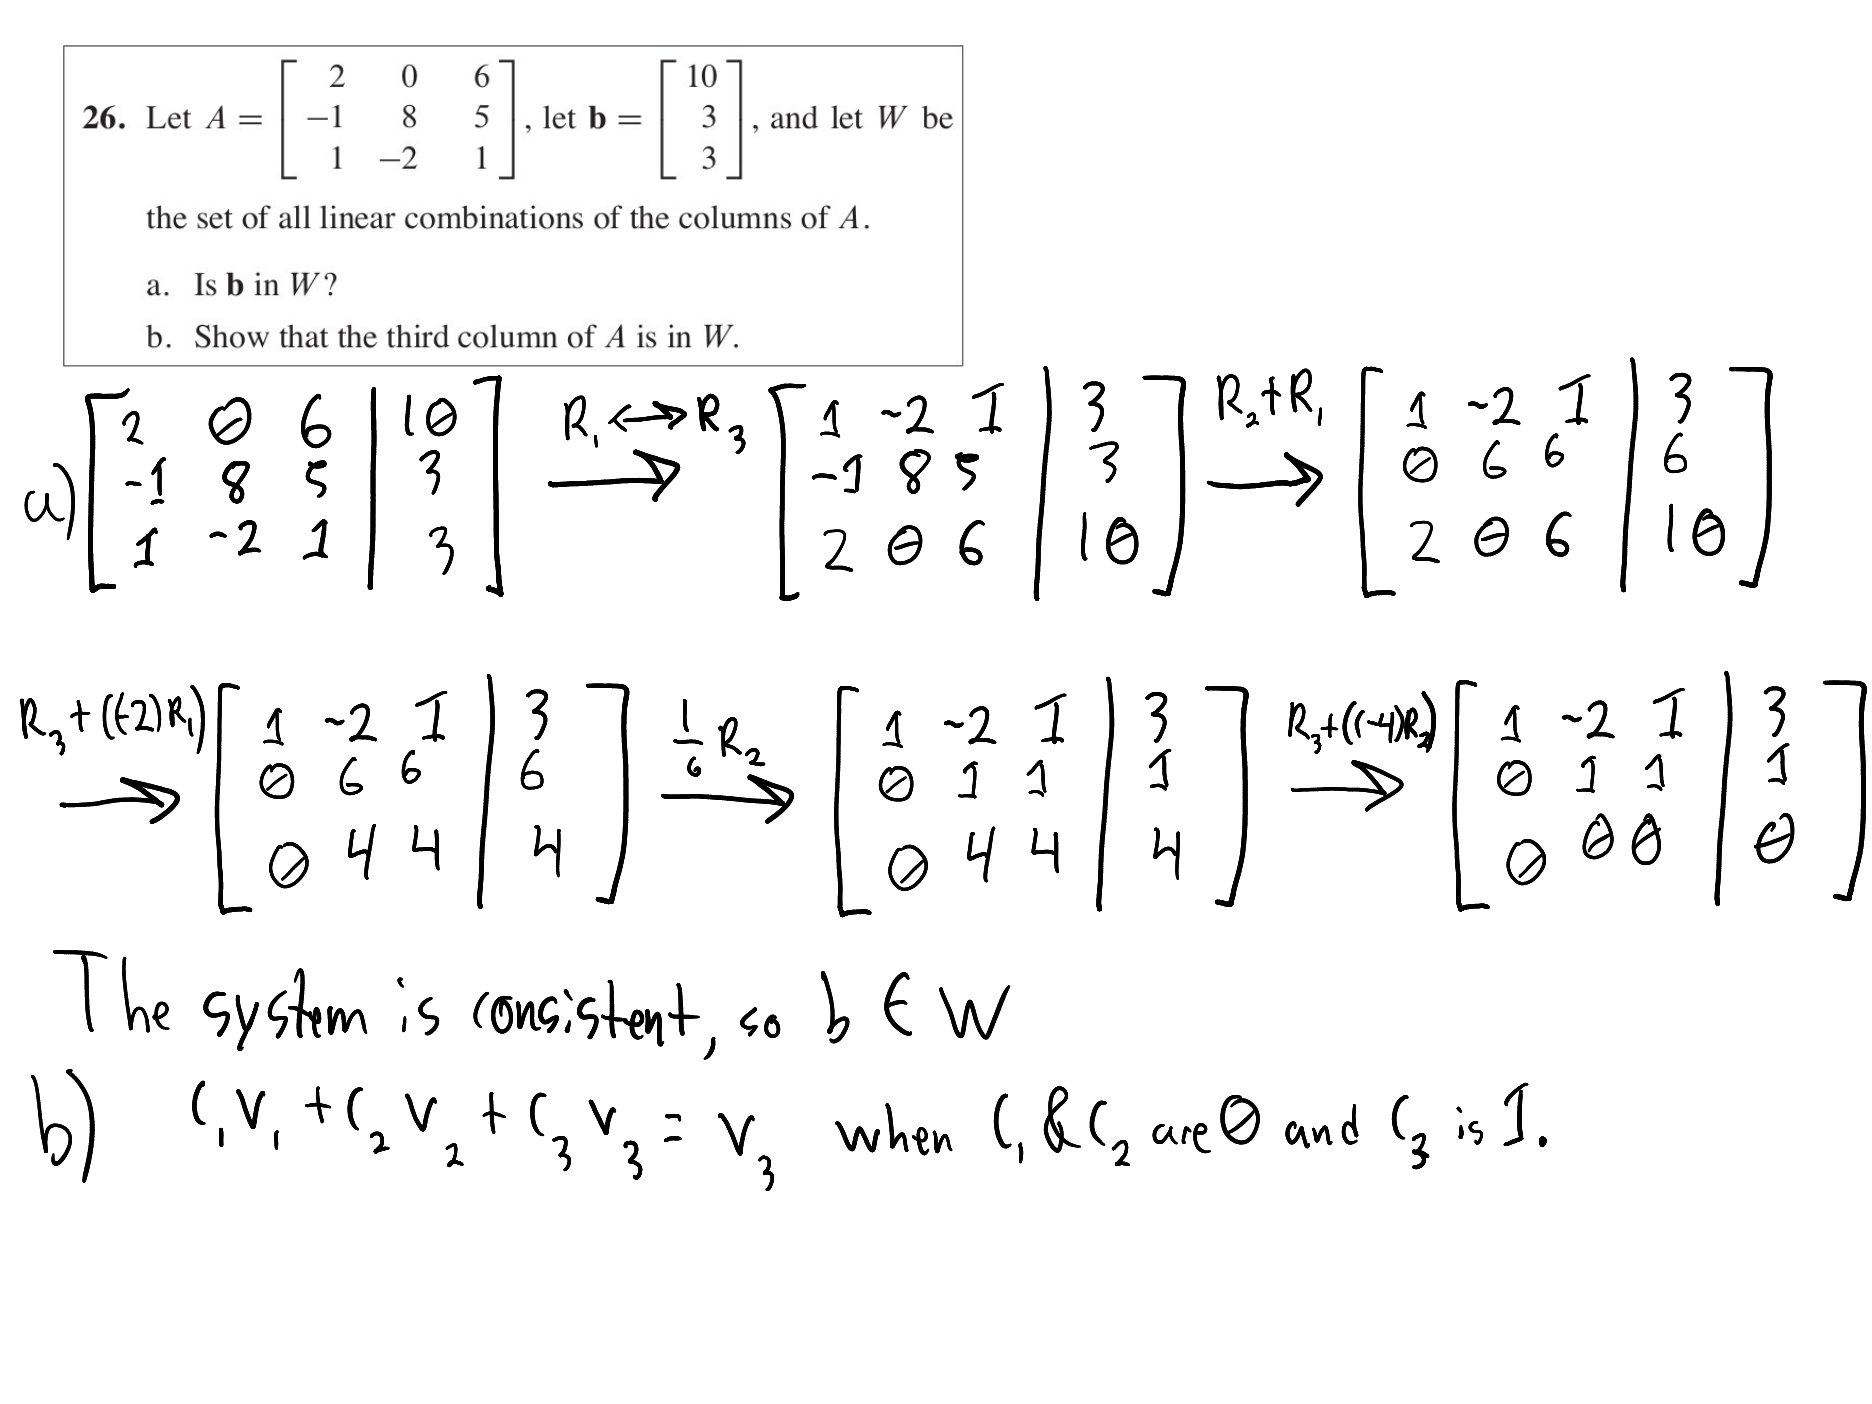 26. Let A = [ 2 0 6 ; −1 8 5 ; 1 −2 1 ], let b = [ 10 ; 3 ; 3 ], and let W be
the set of all linear combinations of the columns of A.
a. Is b in W?
b. Show that the third column of A is in W.
a) [ 2 0 6 | 10 ; -1 8 5 | 3 ; 1 -2 1 | 3 ] R₁ ↔ R₃ → [ 1 -2 1 | 3 ; -1 8 5 | 3 ; 2 0 6 | 10 ] R₂+R₁ → [ 1 -2 1 | 3 ; 0 6 6 | 6 ; 2 0 6 | 10 ]
R₃+((-2)R₁) → [ 1 -2 1 | 3 ; 0 6 6 | 6 ; 0 4 4 | 4 ] 1/6 R₂ → [ 1 -2 1 | 3 ; 0 1 1 | 1 ; 0 4 4 | 4 ] R₃+((-4)R₂) → [ 1 -2 1 | 3 ; 0 1 1 | 1 ; 0 0 0 | 0 ]
The system is consistent, so b ∈ W
b) C₁V₁ + C₂V₂ + C₃V₃ = V₃ when C₁ & C₂ are 0 and C₃ is 1.